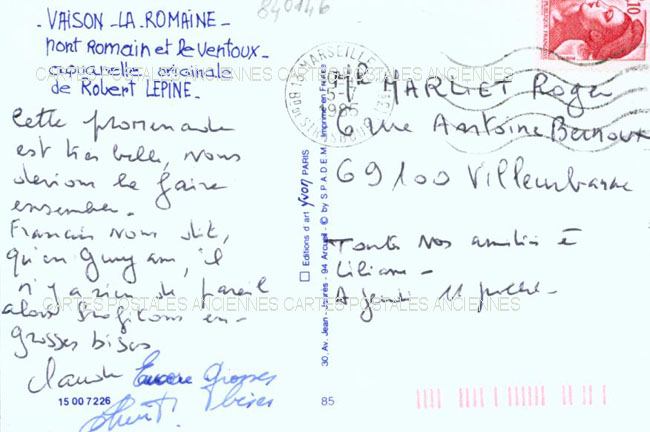 - VAISON - LA - ROMAINE -
pont Romain et le Ventoux -
aquarelle originale
de Robert LEPINE.
Cette promenade
est très belle, nous
devions la faire
ensemble.
Francis nous dit,
qu'en Guyane, il
n'y a rien de pareil
alors profitons en -
grosses bises
Claude Encore Grosses
bises
15 00 7 226
840146
MARSEILLE
1985
2,10
Mr MARLIET Roger
6 rue Antoine Bernoux
69100 Villeurbanne
Toutes nos amitiés à
Liliane -
A jeudi 11 juillet -
Editions d'art yvon PARIS
30, Av. Jean-Jaurès - 94 Arcueil - © by S.P.A.D.E.M. Imprimé en France
85
CARTES POSTALES ANCIENNES CARTES POSTALES ANCIENNES
CARTES POSTALES ANCIENNES CARTES POSTALES ANCIENNES